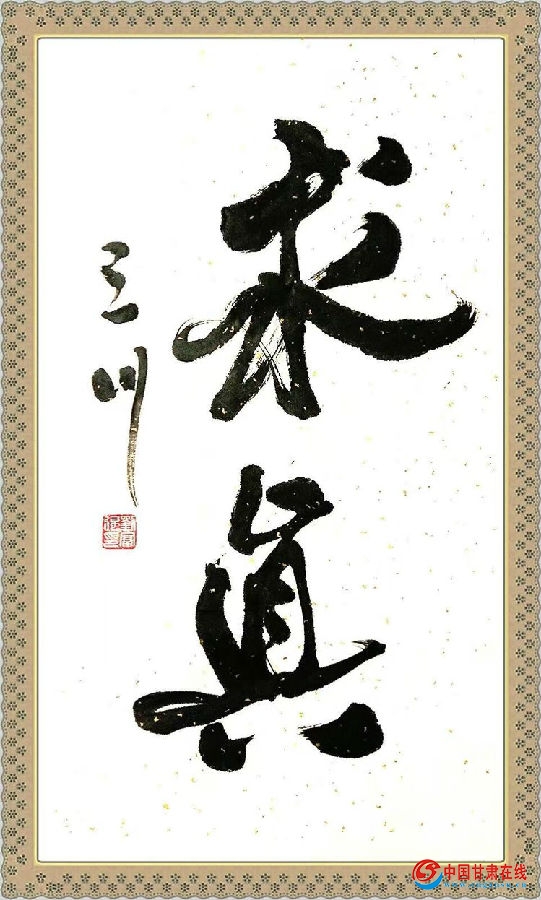 求真
三川
中国甘肃在线